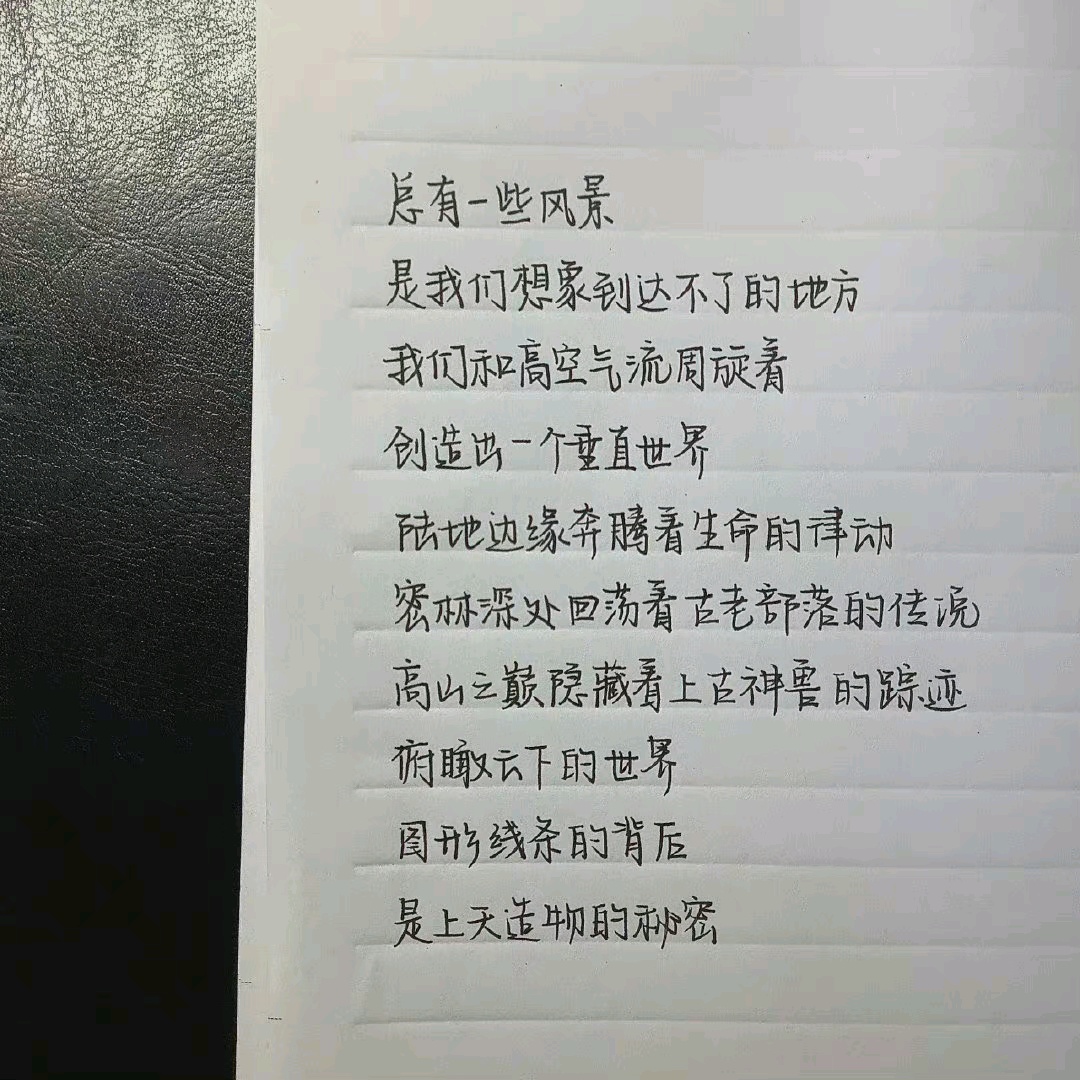 总有一些风景
是我们想象到达不了的地方
我们和高空气流周旋着
创造出一个垂直世界
陆地边缘奔腾着生命的律动
密林深处回荡着古老部落的传说
高山之巅隐藏着上古神兽的踪迹
俯瞰云下的世界
图形线条的背后
是上天造物的秘密